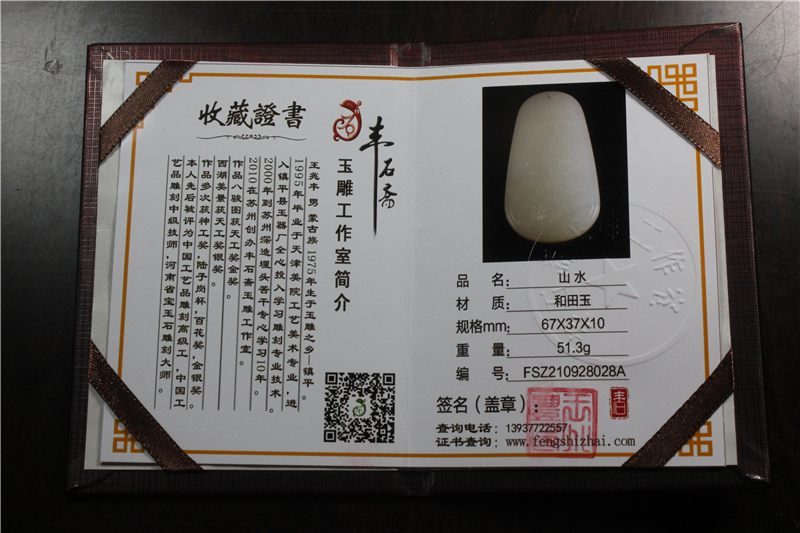 收藏證書
丰石斋
玉雕工作室简介
王兆丰 男 蒙古族 1975年生于玉雕之乡—镇平。
1995年毕业于天津美院工艺美术专业，进
入镇平县玉器厂全心投入学习雕刻专业技术。
2000年到苏州深造埋头苦干专心学习10年。
2010在苏州创办丰石斋玉雕工作室。
作品八骏图获天工奖金奖。
西湖美景获天工奖银奖。
作品多次获神工奖，陆子岗杯，百花奖，金银奖。
本人先后被评为中国工艺品雕刻高级工，中国工
艺品雕刻中级技师，河南省宝玉石雕刻大师。
品 名： 山水
材 质： 和田玉
规格mm： 67X37X10
重 量： 51.3g
编 号： FSZ210928028A
签名（盖章）：
丰石
查询电话：13937722557
证书查询：www.fengshizhai.com